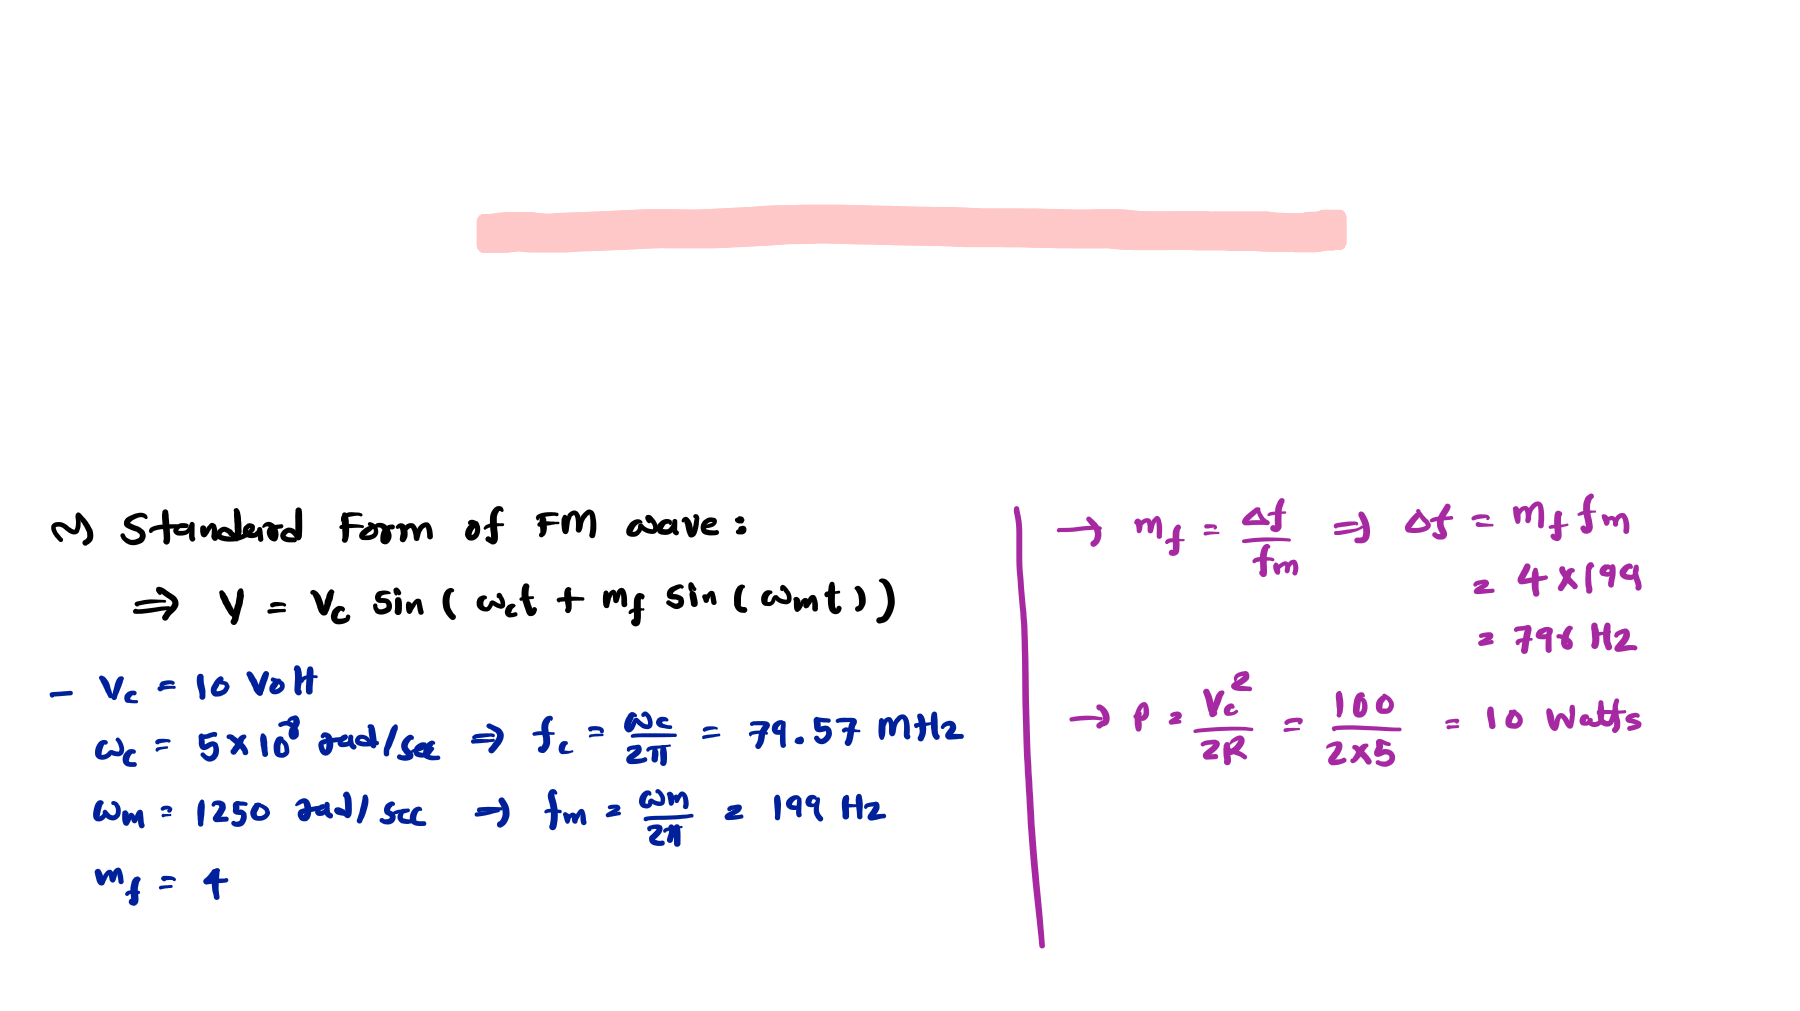 ~) Standard Form of FM wave:
⇒ V = Vc sin ( ωct + mf sin ( ωmt ) )
- Vc = 10 Volt
ωc = 5 × 10^8 rad/sec ⇒ fc = ωc/2π = 79.57 MHz
ωm = 1250 rad/sec → fm = ωm/2π = 199 Hz
mf = 4
→ mf = Δf/fm ⇒ Δf = mf fm
= 4 × 199
= 796 Hz
→ P = Vc^2/2R = 100/2×5 = 10 Watts